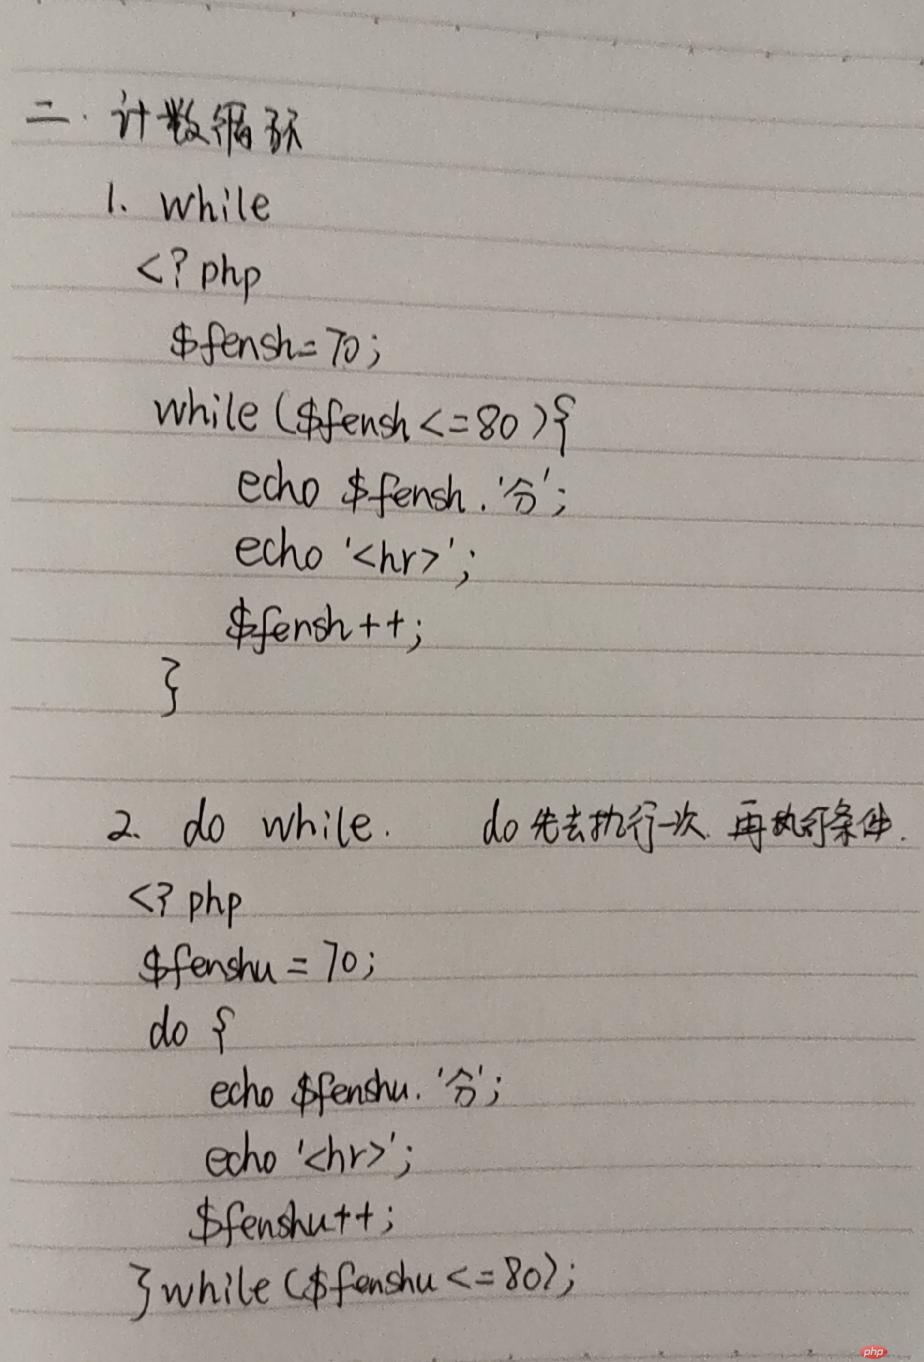 二.计数循环
1. while
<?php
$fensh=70;
while ($fensh<=80){
echo $fensh.'分';
echo '<hr>';
$fensh++;
}
2. do while. do先去执行一次.再执行条件.
<?php
$fenshu=70;
do {
echo $fenshu.'分';
echo '<hr>';
$fenshu++;
}while($fenshu<=80);
php